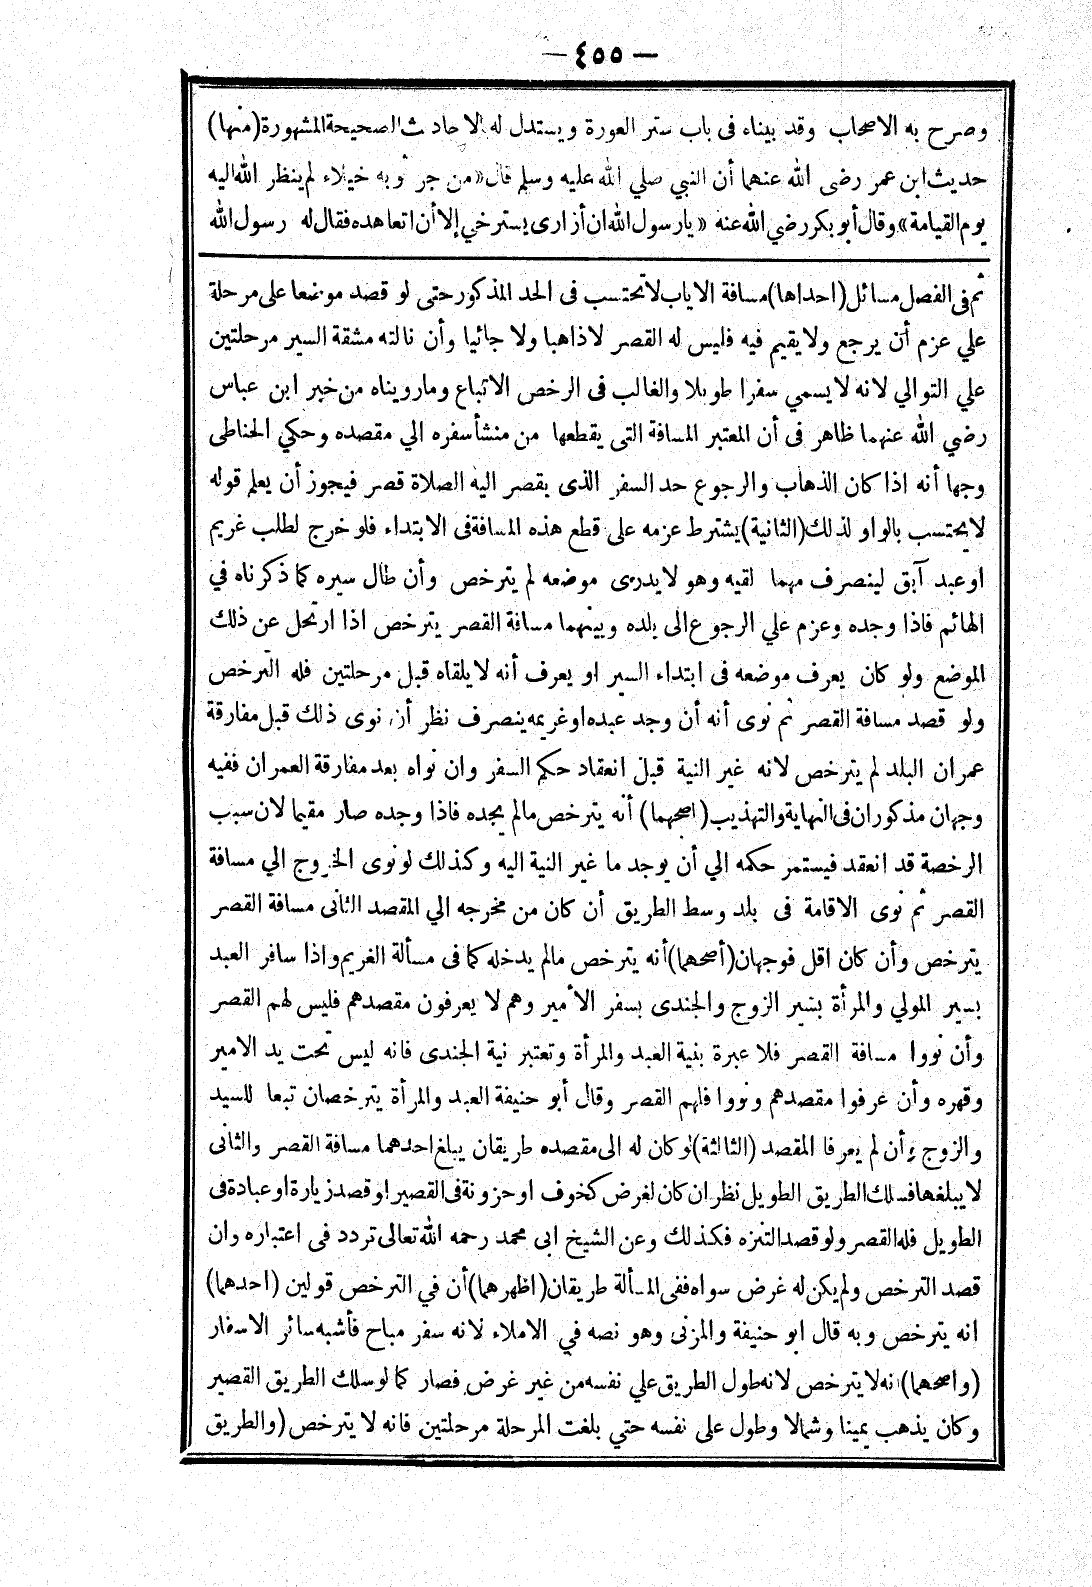 — ٤٥٥ —
وصرح به الاصحاب وقد بيناه فى باب ستر العورة ويستدل له بالاحاديث الصحيحة المشهورة (منها)
حديث ابن عمر رضى الله عنهما أن النبي صلي الله عليه وسلم قال «من جر ثوبه خيلاء لم ينظر الله اليه
يوم القيامة» وقال أبو بكر رضي الله عنه «يارسول الله ان أزارى يسترخي إلا أن اتعاهده فقال له رسول الله
ثم فى الفصل مسائل (احداها) مسافة الاياب لا تحتسب فى الحد المذكور حتى لو قصد موضعا على مرحلة
علي عزم أن يرجع ولا يقيم فيه فليس له القصر لا ذاهبا ولا جائيا وأن نالته مشقة السير مرحلتين
علي التوالي لانه لا يسمي سفرا طويلا والغالب فى الرخص الاتباع ومارويناه من خبر ابن عباس
رضي الله عنهما ظاهر فى أن المعتبر المسافة التى يقطعها من منشأ سفره الي مقصده وحكي الحناطى
وجها أنه اذا كان الذهاب والرجوع حد السفر الذى يقصر اليه الصلاة قصر فيجوز أن يعلم قوله
لا يحتسب بالواو لذلك (الثانية) يشترط عزمه على قطع هذه المسافة فى الابتداء فلو خرج لطلب غريم
اوعبد آبق لينصرف مهما لقيه وهو لا يدرى موضعه لم يترخص وأن طال سيره كما ذكرناه في
الهائم فاذا وجده وعزم علي الرجوع الى بلده وبينهما مسافة القصر يترخص اذا ارتحل عن ذلك
الموضع ولو كان يعرف موضعه فى ابتداء السير او يعرف أنه لا يلقاه قبل مرحلتين فله الترخص
ولو قصد مسافة القصر ثم نوى أنه أن وجد عبده اوغريمه ينصرف نظر أن نوى ذلك قبل مفارقة
عمران البلد لم يترخص لانه غير النية قبل انعقاد حكم السفر وان نواه بعد مفارقة العمران ففيه
وجهان مذكوران فى النهاية والتهذيب (اصحهما) أنه يترخص مالم يجده فاذا وجده صار مقيما لان سبب
الرخصة قد انعقد فيستمر حكمه الي أن يوجد ما غير النية اليه وكذلك لو نوى الخروج الي مسافة
القصر ثم نوى الاقامة فى بلد وسط الطريق أن كان من مخرجه الي المقصد الثانى مسافة القصر
يترخص وأن كان اقل فوجهان (أصحهما) أنه يترخص مالم يدخله كما فى مسألة الغريم واذا سافر العبد
بسير المولي والمرأة بسير الزوج والجندى بسفر الأمير وهم لا يعرفون مقصدهم فليس لهم القصر
وأن نووا مسافة القصر فلا عبرة بنية العبد والمرأة وتعتبر نية الجندى فانه ليس تحت يد الامير
وقهره وأن عرفوا مقصدهم ونووا فلهم القصر وقال أبو حنيفة العبد والمرأة يترخصان تبعا للسيد
والزوج وأن لم يعرفا المقصد (الثالثة) لو كان له الى مقصده طريقان يبلغ احدهما مسافة القصر والثانى
لا يبلغها فسلك الطريق الطويل نظر ان كان لغرض كخوف اوحزونة فى القصير او قصد زيارة اوعبادة فى
الطويل فله القصر ولو قصد التنزه فكذلك وعن الشيخ ابى محمد رحمه الله تعالى تردد فى اعتباره وان
قصد الترخص ولم يكن له غرض سواه ففى المسألة طريقان (اظهرهما) أن في الترخص قولين (احدهما)
انه يترخص وبه قال ابو حنيفة والمزنى وهو نصه في الاملاء لانه سفر مباح فأشبه سائر الاسفار
(واصحهما) انه لا يترخص لانه طول الطريق علي نفسه من غير غرض فصار كما لو سلك الطريق القصير
وكان يذهب يمينا وشمالا وطول على نفسه حتي بلغت المرحلة مرحلتين فانه لا يترخص (والطريق